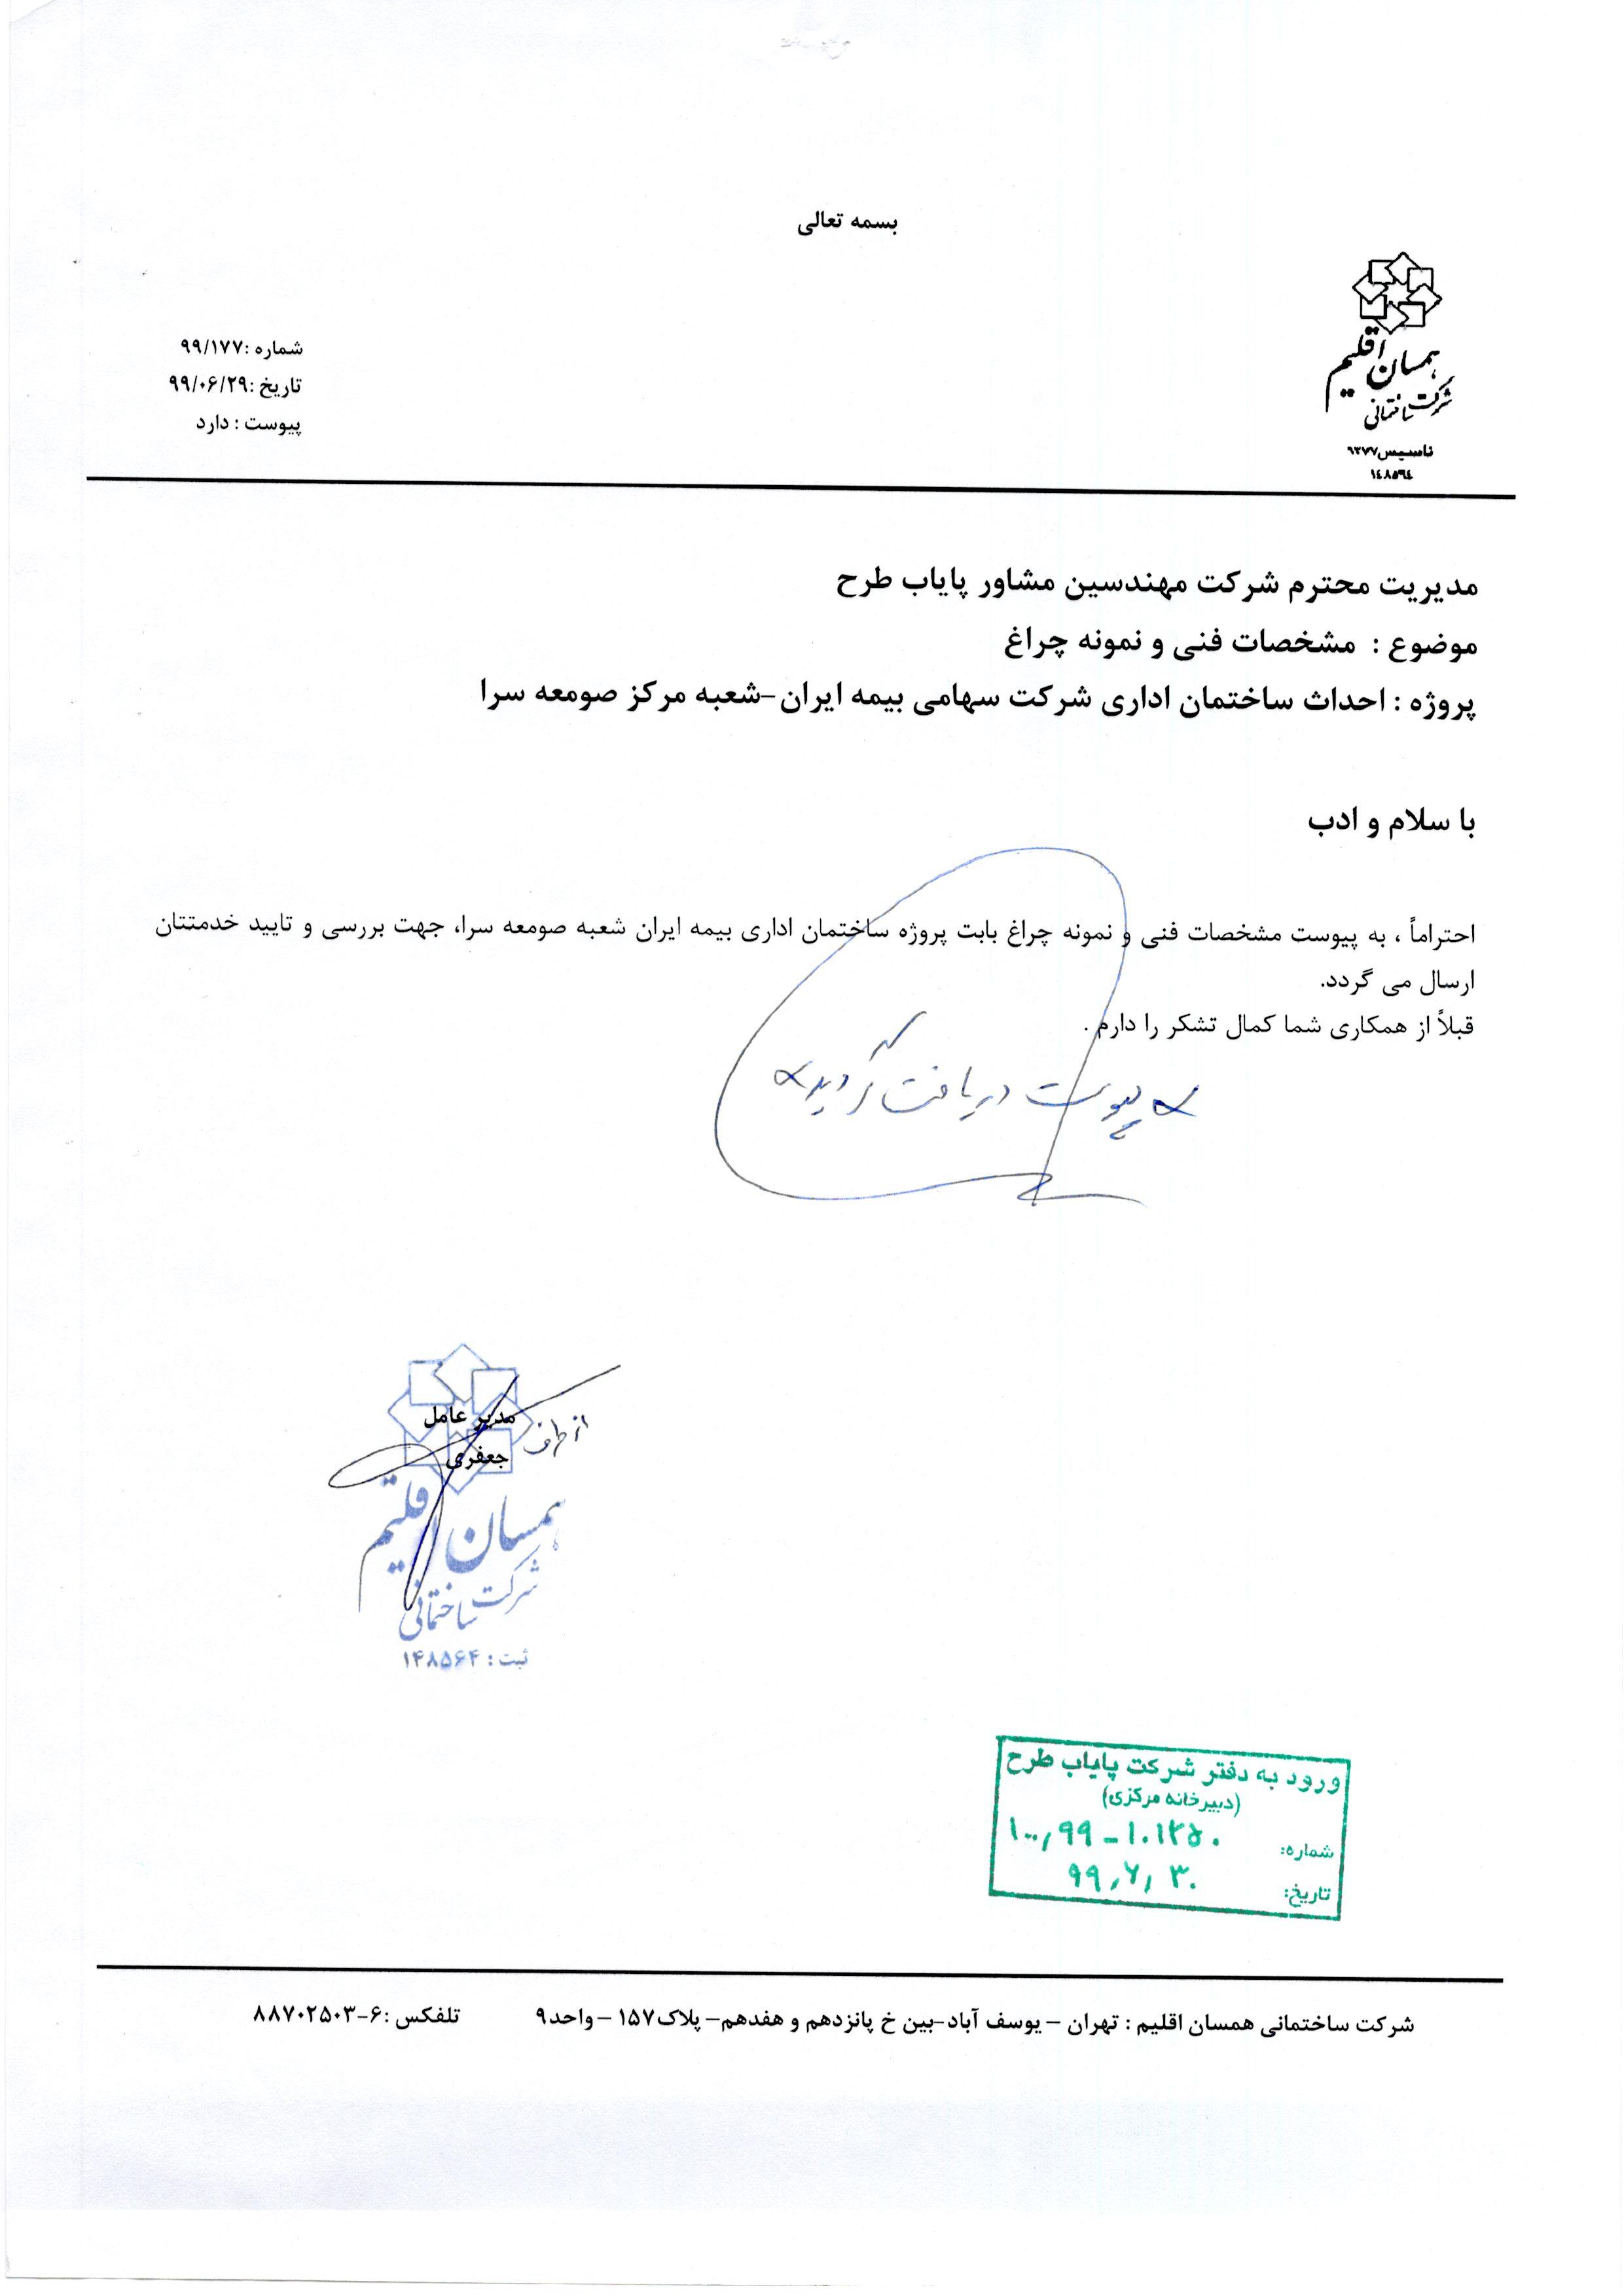 بسمه تعالی
همسان اقلیم
شرکت ساختمانی
تاسیس ۱۳۷۷
۱۴۸۵۶۴
شماره :۹۹/۱۷۷
تاریخ :۹۹/۰۶/۲۹
پیوست : دارد
مدیریت محترم شرکت مهندسین مشاور پایاب طرح
موضوع : مشخصات فنی و نمونه چراغ
پروژه : احداث ساختمان اداری شرکت سهامی بیمه ایران-شعبه مرکز صومعه سرا
با سلام و ادب
احتراماً ، به پیوست مشخصات فنی و نمونه چراغ بابت پروژه ساختمان اداری بیمه ایران شعبه صومعه سرا، جهت بررسی و تایید خدمتتان
ارسال می گردد.
قبلاً از همکاری شما کمال تشکر را دارم .
پیوست دریافت گردید
از طرف
مدیر عامل
جعفری
همسان اقلیم
شرکت ساختمانی
ثبت : ۱۴۸۵۶۴
ورود به دفتر شرکت پایاب طرح
(دبیرخانه مرکزی)
شماره: ۱۰۰,۹۹-۱۰۱۲۵۰
تاریخ: ۹۹,۶,۳۰
شرکت ساختمانی همسان اقلیم : تهران – یوسف آباد-بین خ پانزدهم و هفدهم– پلاک۱۵۷ – واحد۹ تلفکس :۶-۸۸۷۰۲۵۰۳